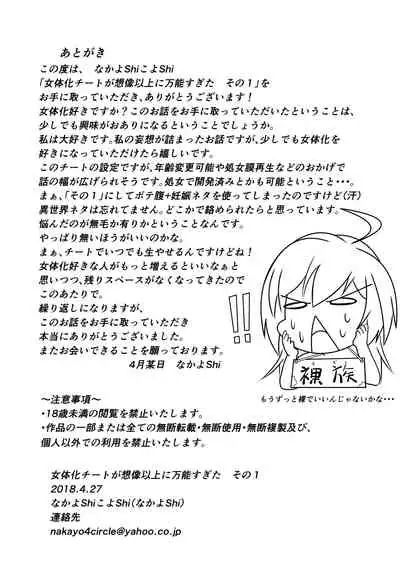 あとがき
この度は、 なかよShiこよShi
「女体化チートが想像以上に万能すぎた その１」を
お手に取っていただき、ありがとうございます！
女体化好きですか？このお話をお手に取っていただいたということは、
少しでも興味がおありになるということでしょうか。
私は大好きです。私の妄想が詰まったお話ですが、少しでも女体化を
好きになっていただけたら嬉しいです。
このチートの設定ですが、年齢変更可能や処女膜再生などのおかげで
話の幅が広げられそうです。処女で開発済みとかも可能ということ・・・。
まぁ、「その１」にしてボテ腹+妊娠ネタを使ってしまったのですけど(汗)
異世界ネタは忘れてません。どこかで絡められたらと思っています。
悩んだのが無毛か有りかということなんです。
やっぱり無いほうがいいのかな。
まぁ、チートでいつでも生やせるんですけどね！
女体化好きな人がもっと増えるといいなぁと
思いつつ、残りスペースがなくなってきたので
このあたりで。
繰り返しになりますが、
このお話をお手に取っていただき
本当にありがとうございました。
またお会いできることを願っております。
4月某日 なかよShi
!!
裸族
もうずっと裸でいいんじゃないかな・・・
～注意事項～
・18歳未満の閲覧を禁止いたします。
・作品の一部または全ての無断転載・無断使用・無断複製及び、
個人以外での利用を禁止いたします。
女体化チートが想像以上に万能すぎた その１
2018.4.27
なかよShiこよShi(なかよShi)
連絡先
nakayo4circle@yahoo.co.jp